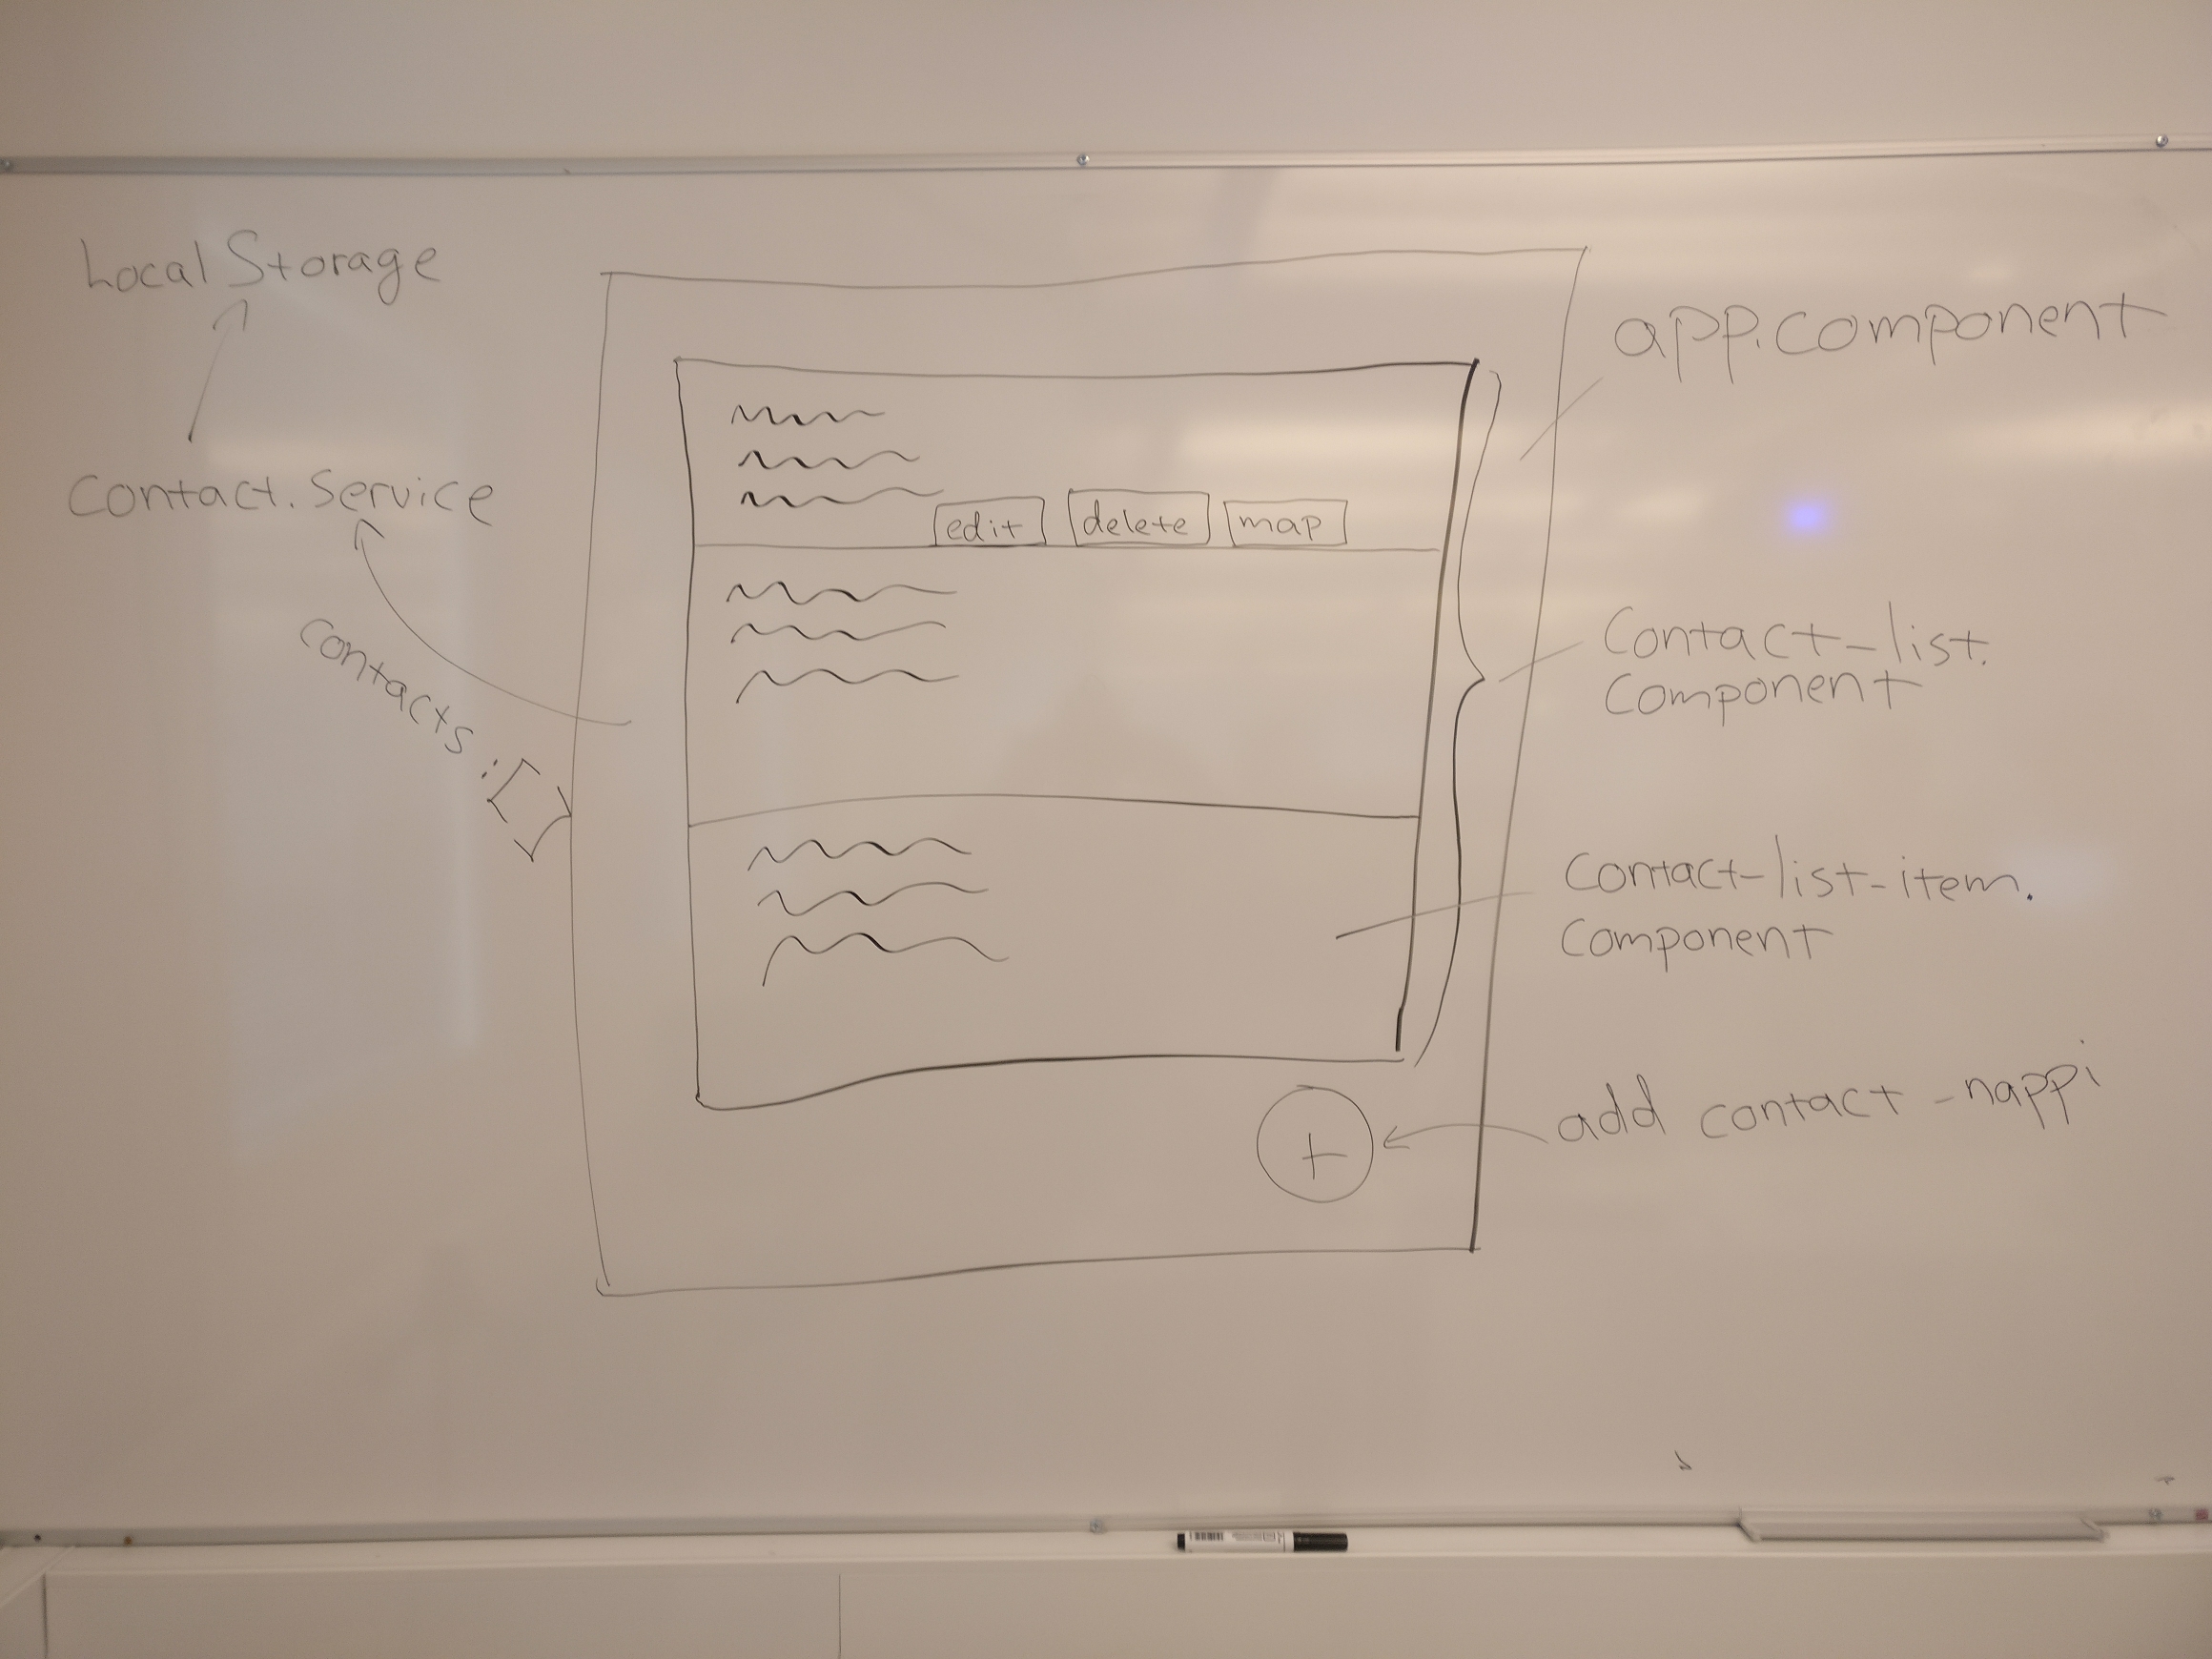 Local Storage
Contact.Service
contacts : [ ]
edit
delete
map
+
app.component
Contact-list.
Component
Contact-list-item.
Component
add contact -nappi